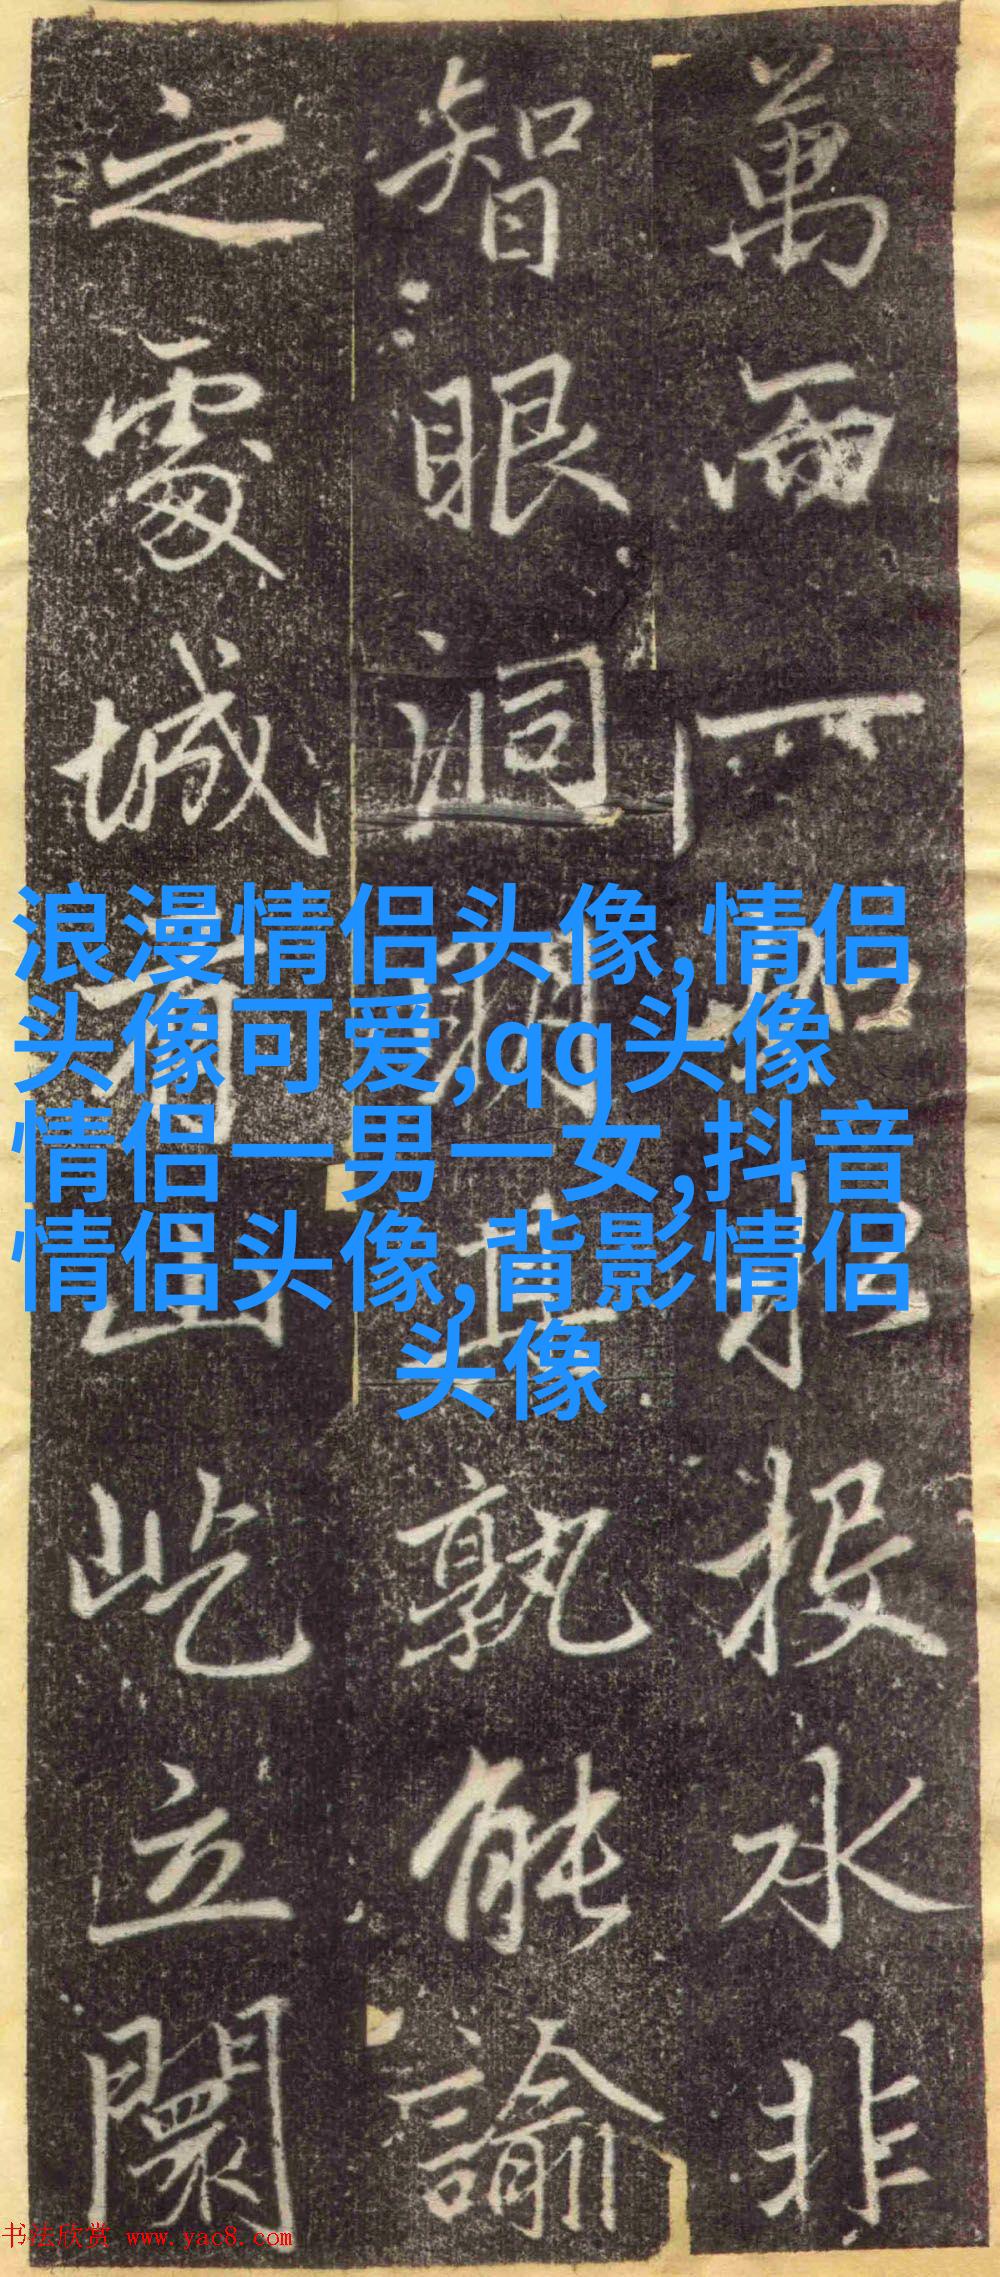 萬而一如投水非
智眼洞孰能諭
之處城山屹立闤
浪漫情侣头像,情侣
头像可爱,qq头像
情侣一男一女,抖音
情侣头像,背影情侣
头像
书法欣赏 www.yac8.com